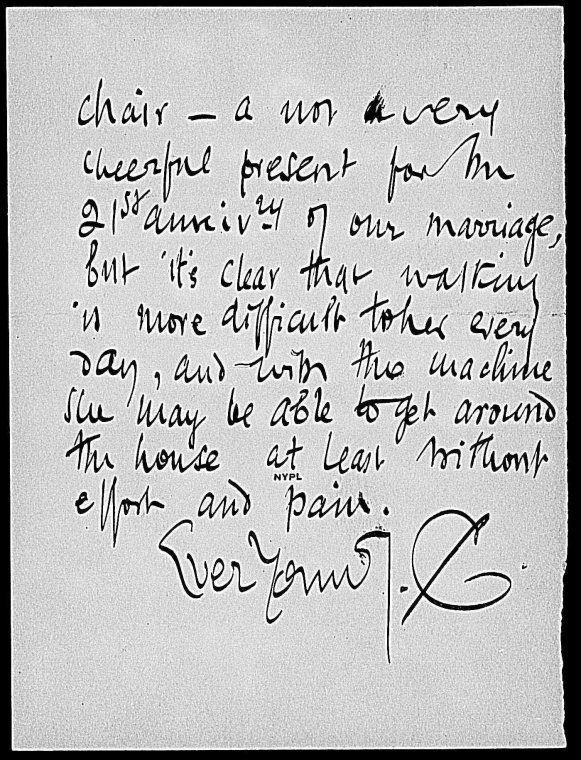 chair — a not a very
cheerful present for the
21st anniv.ry of our marriage,
but it's clear that walking
is more difficult to her every
day, and with this machine
she may be able to get around
the house at least without
NYPL
effort and pain.
Ever Yours J. C.